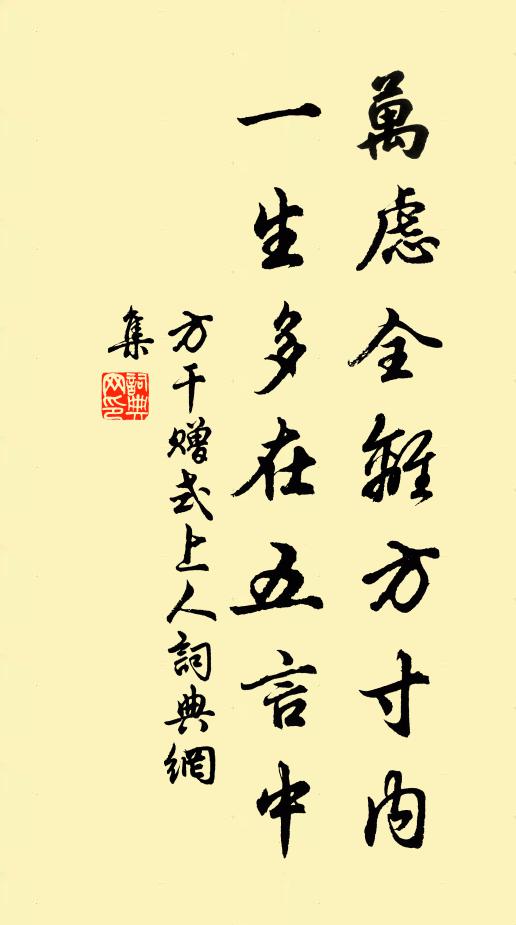 萬慮全離方寸内
一生多在五言中
方干赠式上人詞典網
集
詞典
网印